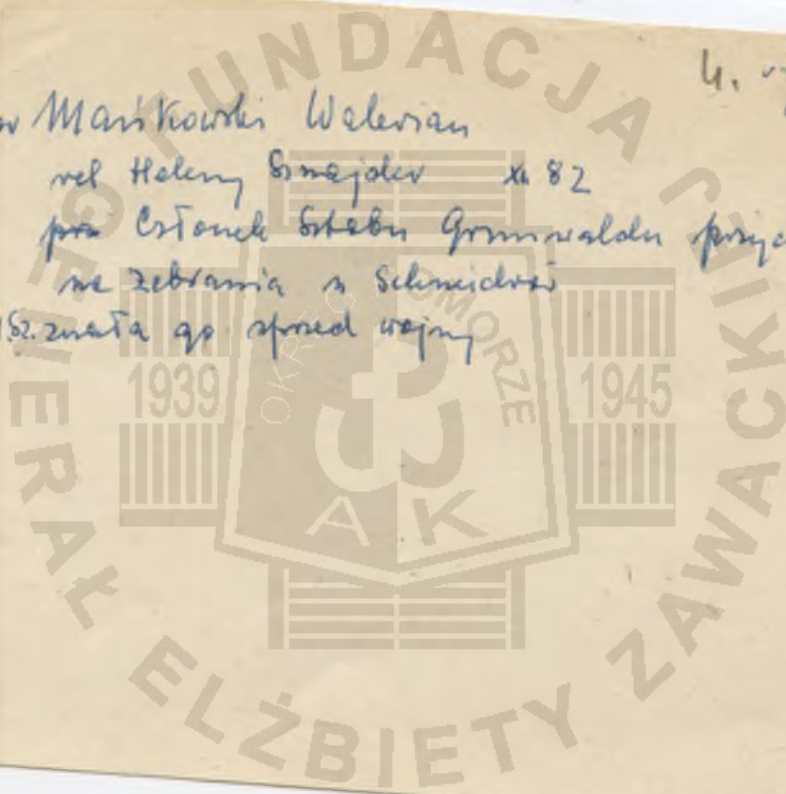 4.
Mańkowski Walerian
rel Heleny Sznajder XII 82
prze Członek Sztabu Grunwaldu przyc
na zebrania u Schneidrów
HSz. znała go sprzed wojny
FUNDACJA
GENERAŁ ELŻBIETY ZAWACKIEJ
OKRĘG POMORZE
1939
1945
AK